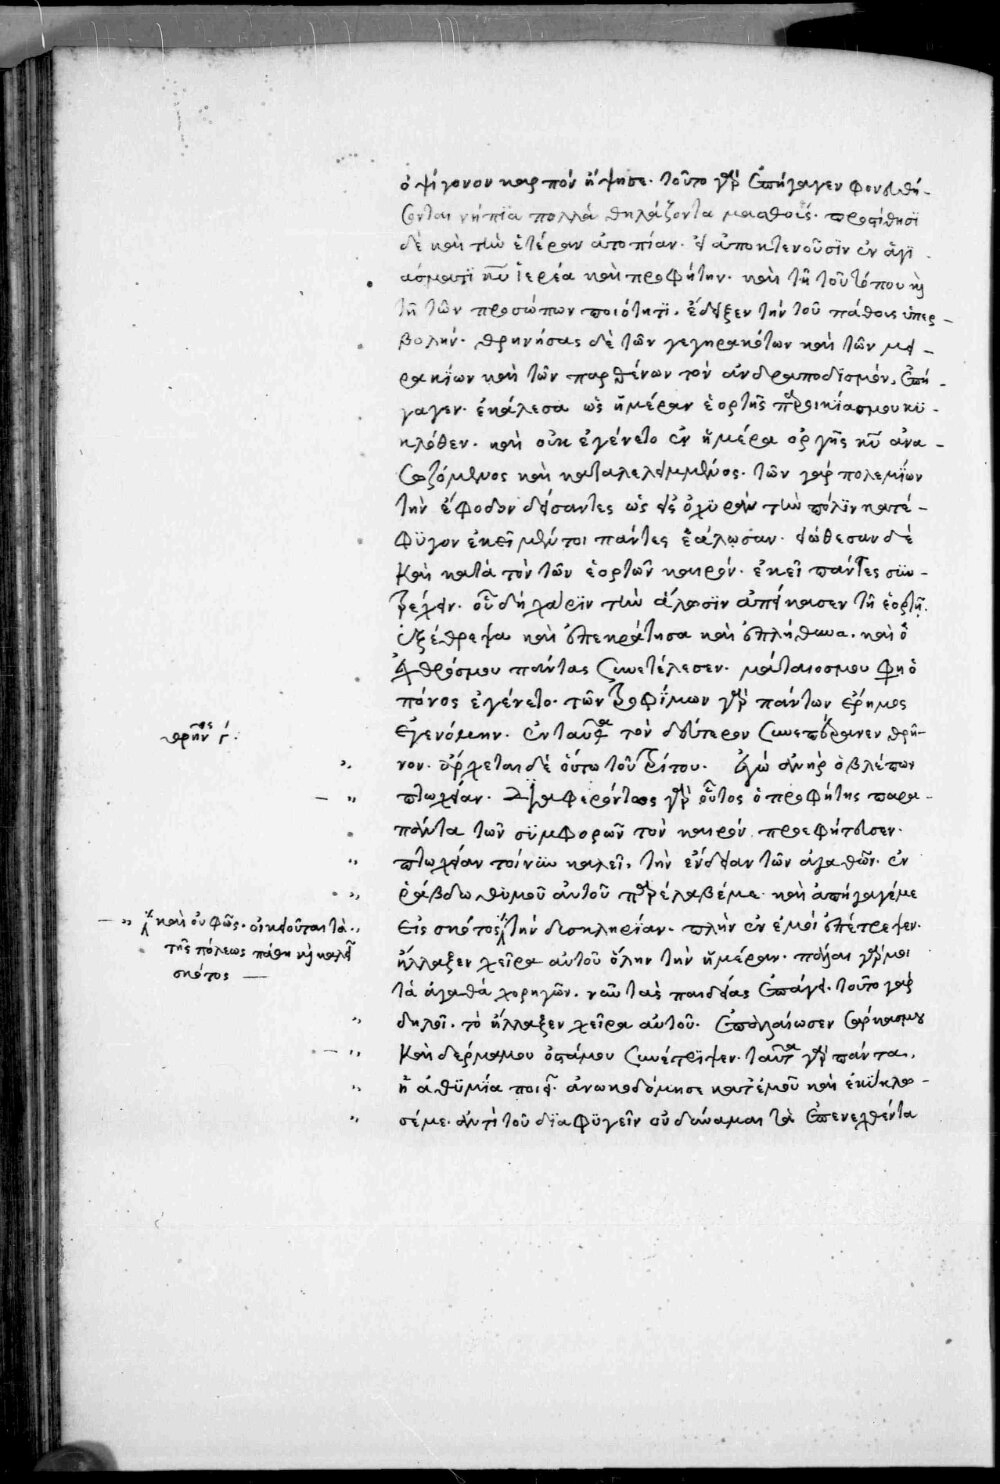 ὀψίγονον καρπὸν ἥψησε. τοῦτο γὰρ ἐπήγαγεν φονευθή-
σονται νήπϊα πολλὰ θηλάζοντα μασθούς. προστίθησϊ
δὲ καὶ τὴν ἑτέραν ἀτοπίαν. εἰ ἀποκτενοῦσϊν ἐν ἁγι-
άσματϊ κυ ἱερέα καὶ προφήτην. καὶ τῆ τοῦ τόπου καὶ
τῆ τῶν προσώπων ποιότητϊ. ἔδειξεν τὴν τοῦ πάθους ὑπερ-
βολήν. θρηνήσας δὲ τῶν γεγηρακότων καὶ τῶν μει-
ρακΐων καὶ τῶν παρθένων τὸν ἀνδραποδϊσμόν. ἐπή-
γαγεν. ἐκάλεσα ὡς ἡμέραν ἑορτῆς παροικίας μου κϋ-
κλόθεν. καὶ οὐκ ἐγένετο ἐν ἡμέρα ὀργῆς κυ ἀνα-
σωζόμενος καὶ καταλελειμμένος. τῶν γὰρ πολεμΐων
τὴν ἔφοδον δείσαντες ὡς εἰς ὀχϋρὰν τὴν πόλϊν κατέ-
φϋγον ἐκεῖ μέντοι πάντες ἑάλωσαν. εἰώθεσαν δὲ
καὶ κατὰ τὸν τῶν ἑορτῶν καιρόν. ἐκεῖ πάντες σϋν-
τρέχειν. οὗ δὴ χάρϊν τὴν ἅλωσϊν ἀπείκασεν τῆ ἑορτῆ.
ἐξέθρεψα καὶ ἐπεκράτησα καὶ ἐπλήθυνα. καὶ ὁ
ἐχθρός μου πάντας συνετέλεσεν. μάταιος μου φη ὁ
πόνος ἐγένετο. τῶν τροφΐμων γὰρ πάντων ἔρημος
ἐγενόμην. ἐνταῦθα τὸν δεύτερον συνεπέρανεν θρῆ-
θρῆνος γ.
νον. ἄρχεται δὲ οὕτω τοῦ τρίτου. ἐγὼ ἀνὴρ ὁ βλέπων
πτωχείαν. διαφερόντως γὰρ οὗτος ὁ προφήτης παρα-
πάντα τῶν σϋμφορῶν τὸν καιρὸν προεφήτευσεν.
πτωχείαν τοίνυν καλεῖ, τὴν ἔνδειαν τῶν ἀγαθῶν. ἐν
ῥάβδω θυμοῦ αὐτοῦ παρέλαβέ με. καὶ ἀπήγαγέ με
εἰς σκότος τὴν δυσκληρίαν. πλὴν ἐν ἐμοὶ ἐπέστρεψεν.
καὶ οὐ φῶς. οἰκειοῦται τὰ
τῆς πόλεως πάθη καὶ καλεῖ
σκότος
ἤλλαξεν χεῖρα αὐτοῦ ὅλην τὴν ἡμέραν. πάλαι γάρ μοι
τὰ ἀγαθὰ χορηγῶν. νῦν τὰς παιδείας ἐπάγει. τοῦτο γὰρ
δηλοῖ. τὸ ἤλλαξεν χεῖρα αὐτοῦ. ἐπαλαίωσεν σάρκας μου
καὶ δέρμα μου ὀστᾶ μου συνέτρϊψεν. ταῦτα γὰρ πάντα.
ἡ ἀθϋμΐα ποιεῖ. ἀνωκοδόμησε κατ' ἐμοῦ καὶ ἐκϋκλω-
σέ με. ἀντὶ τοῦ δϊαφϋγεῖν οὐ δύναμαι τὰ ἐπενεχθέντα